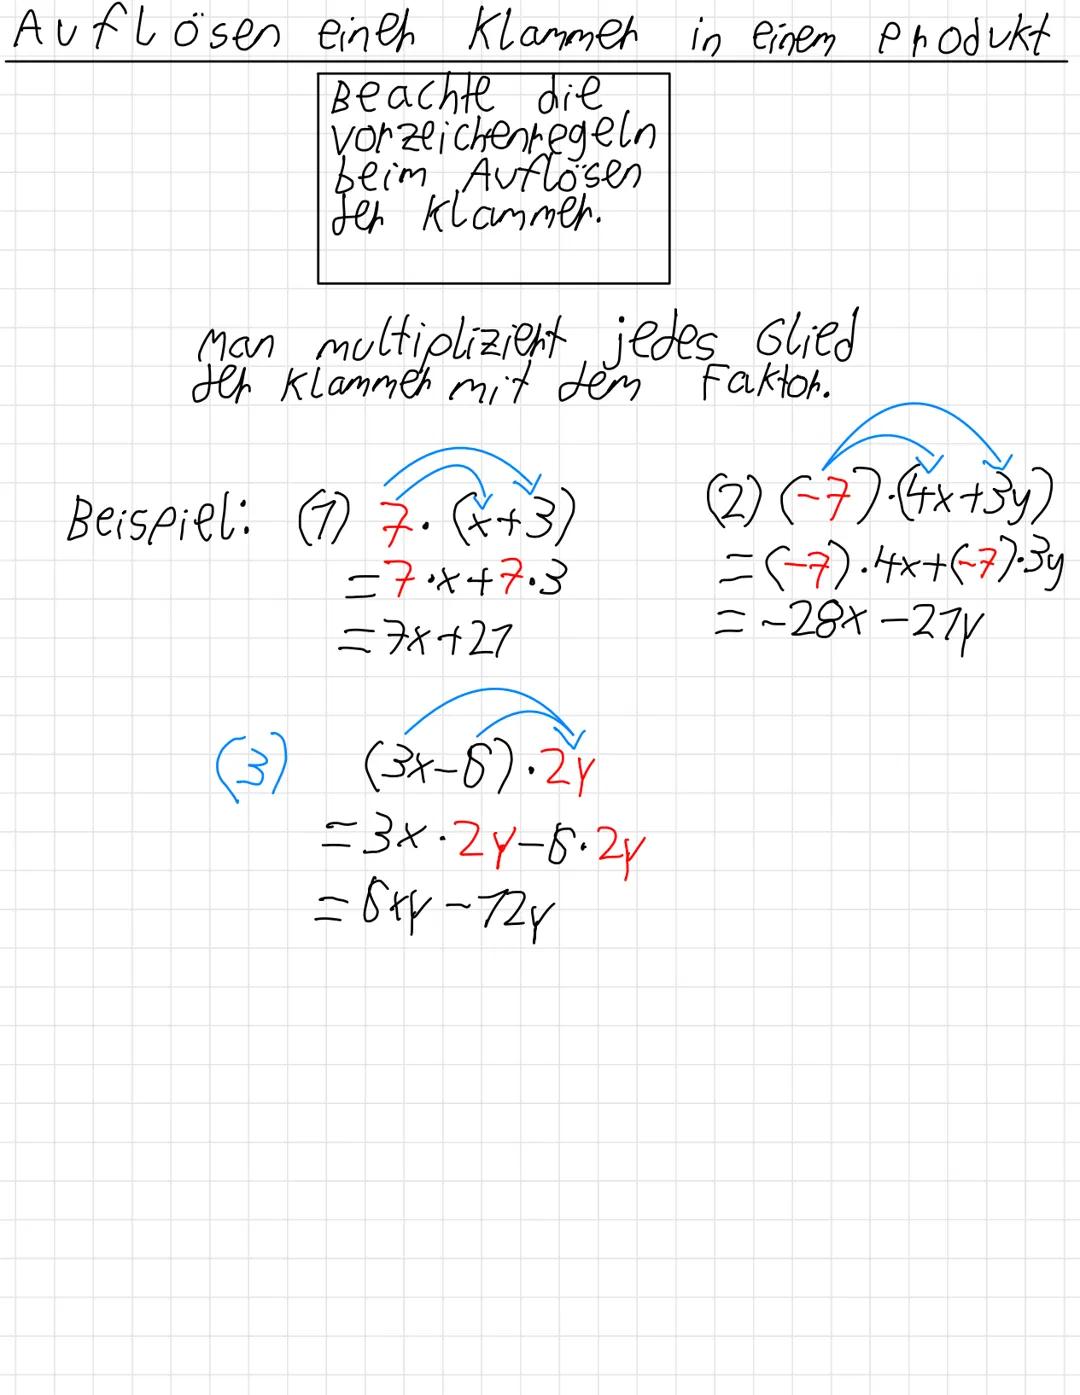 Auflösen einer Klammer in einem Produkt
Beachte die
Vorzeichenregeln
beim Auflösen
der Klammer.
Man multipliziert jedes Glied
der Klammer mit dem Faktor.
Beispiel: (1) 7·(x+3)
=7·x+7·3
=7x+21
(2) (-7)·(4x+3y)
=(-7)·4x+(-7)·3y
=-28x-21y
(3) (3x-6)·2y
=3x·2y-6·2y
=6xy-12y